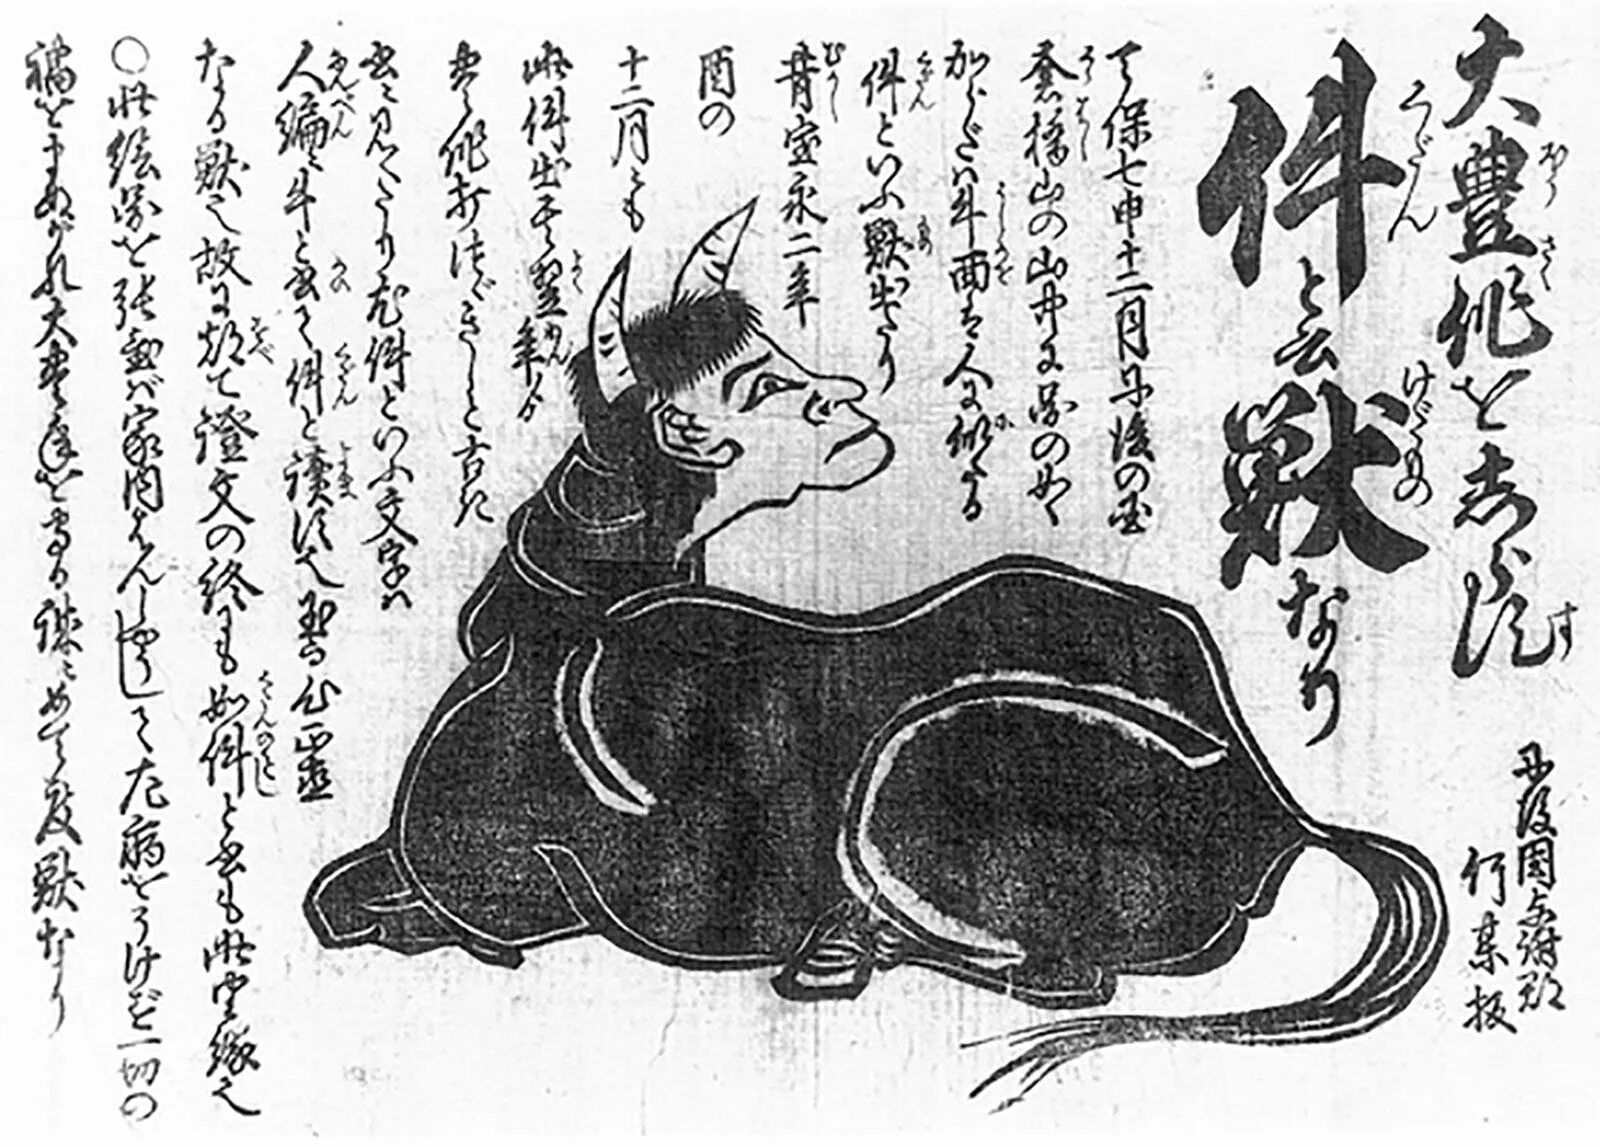 大豊作を志らす
件と云獣なり
丹後国与謝郡
何某板
天保七申十二月丹後の国
倉橋山の山中に図の如く
からだハ牛面は人に似たる
件といふ獣出たり
昔宝永二年
酉の
十二月にも
此件出其翌年ゟ
豊作打つゞきしこと古き
書に見へたり尤件といふ文字ハ
人偏に牛と書て件と読す也至て心正直
なる獣也故に都て證文の終にも如件と書も此由縁也
○此絵図を張置バ家内はんしやうして厄病をうけず一切の
禍をまぬがれ大豊年となる誠にめで度獣なり